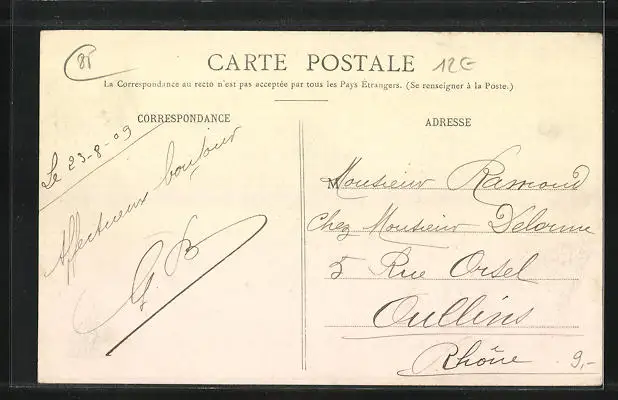 85
CARTE POSTALE 12E
La Correspondance au recto n'est pas acceptée par tous les Pays Étrangers. (Se renseigner à la Poste.)
CORRESPONDANCE
Le 23-8-09
Affectueux bonjour
G. B
ADRESSE
Monsieur Ramond
Chez Monsieur Delorme
5 Rue Orsel
Oullins
Rhône
9,-